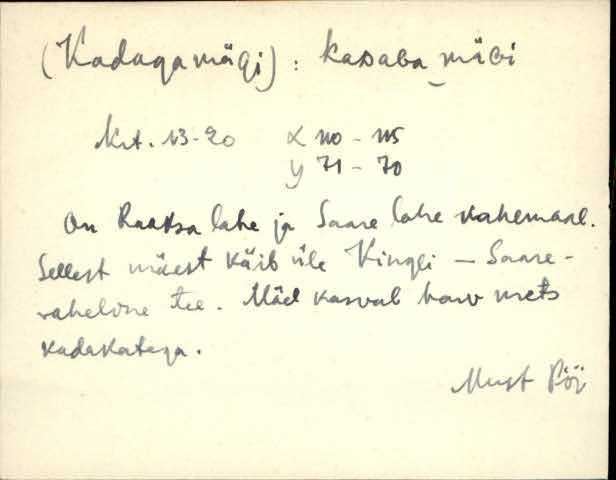 (Kadagamägi): kaDaGa_mäGi
Krt. 13-20 X 110 - 115
y 71 - 70
On Raaksa lahe ja Saare lahe vahemaal.
Sellest mäest käib üle Kingli - Saare-
vaheline tee. Mäel kasvab harv mets
kadakatega.
Must